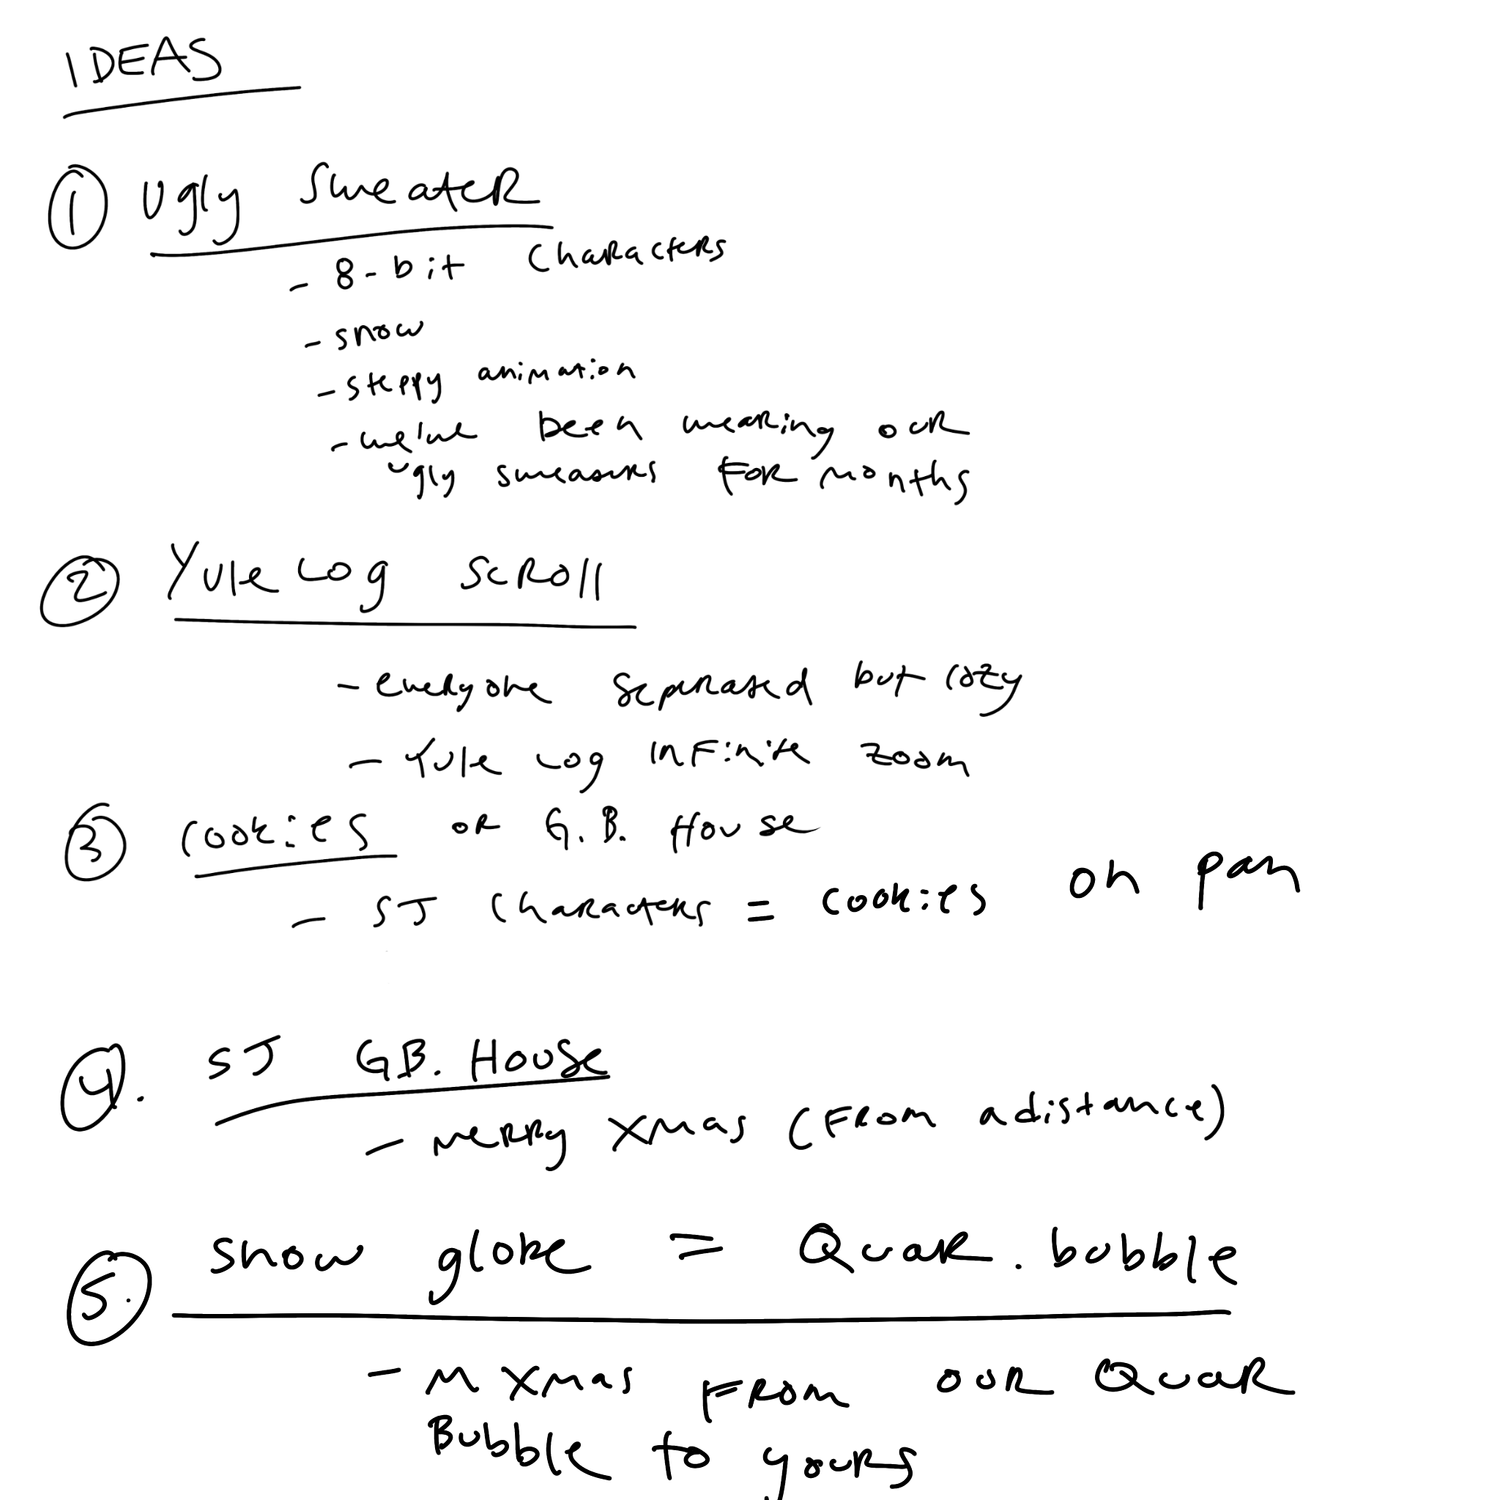 IDEAS
① Ugly Sweater
- 8-bit Characters
- snow
- steppy animation
- we've been wearing our
ugly sweaters for months
② Yule Log Scroll
- everyone separated but cozy
- Yule Log infinite zoom
③ cookies or G.B. House
- SJ Characters = cookies on pan
④. SJ GB. House
- Merry Xmas (From a distance)
⑤. Snow globe = Quar. bubble
- M Xmas From our Quar
Bubble to yours